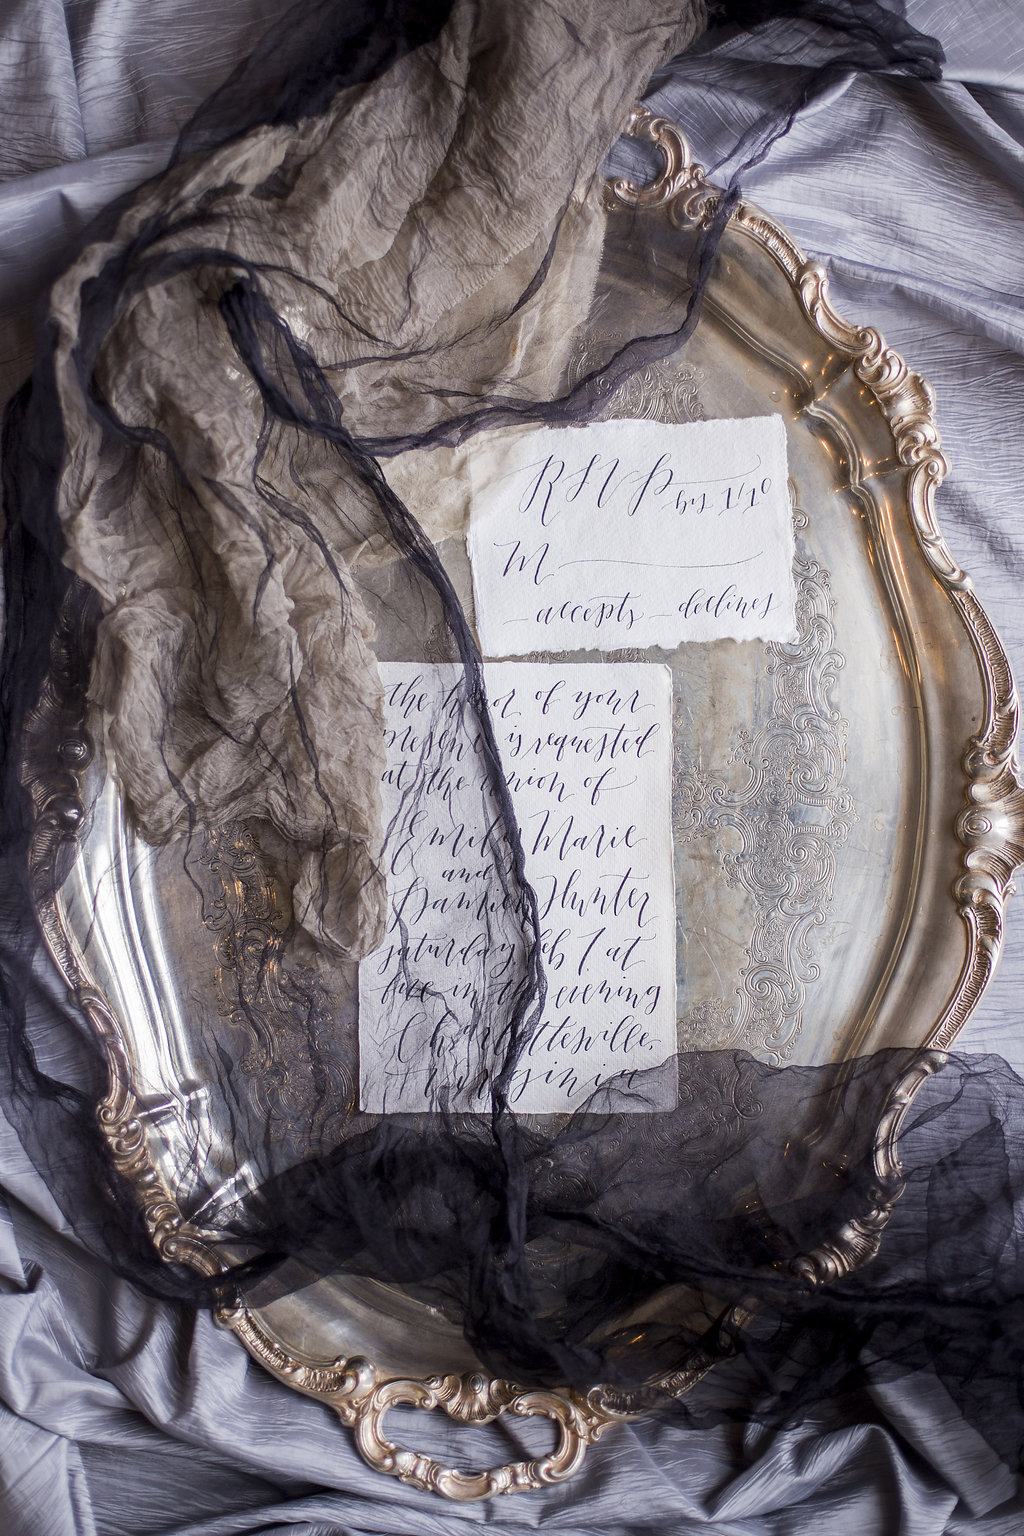 RSVP by 1/10
M
accepts declines
the honor of your
presence is requested
at the union of
Emily Marie
and
Damien Hunter
saturday feb 7. at
five in the evening
Charlottesville,
Virginia